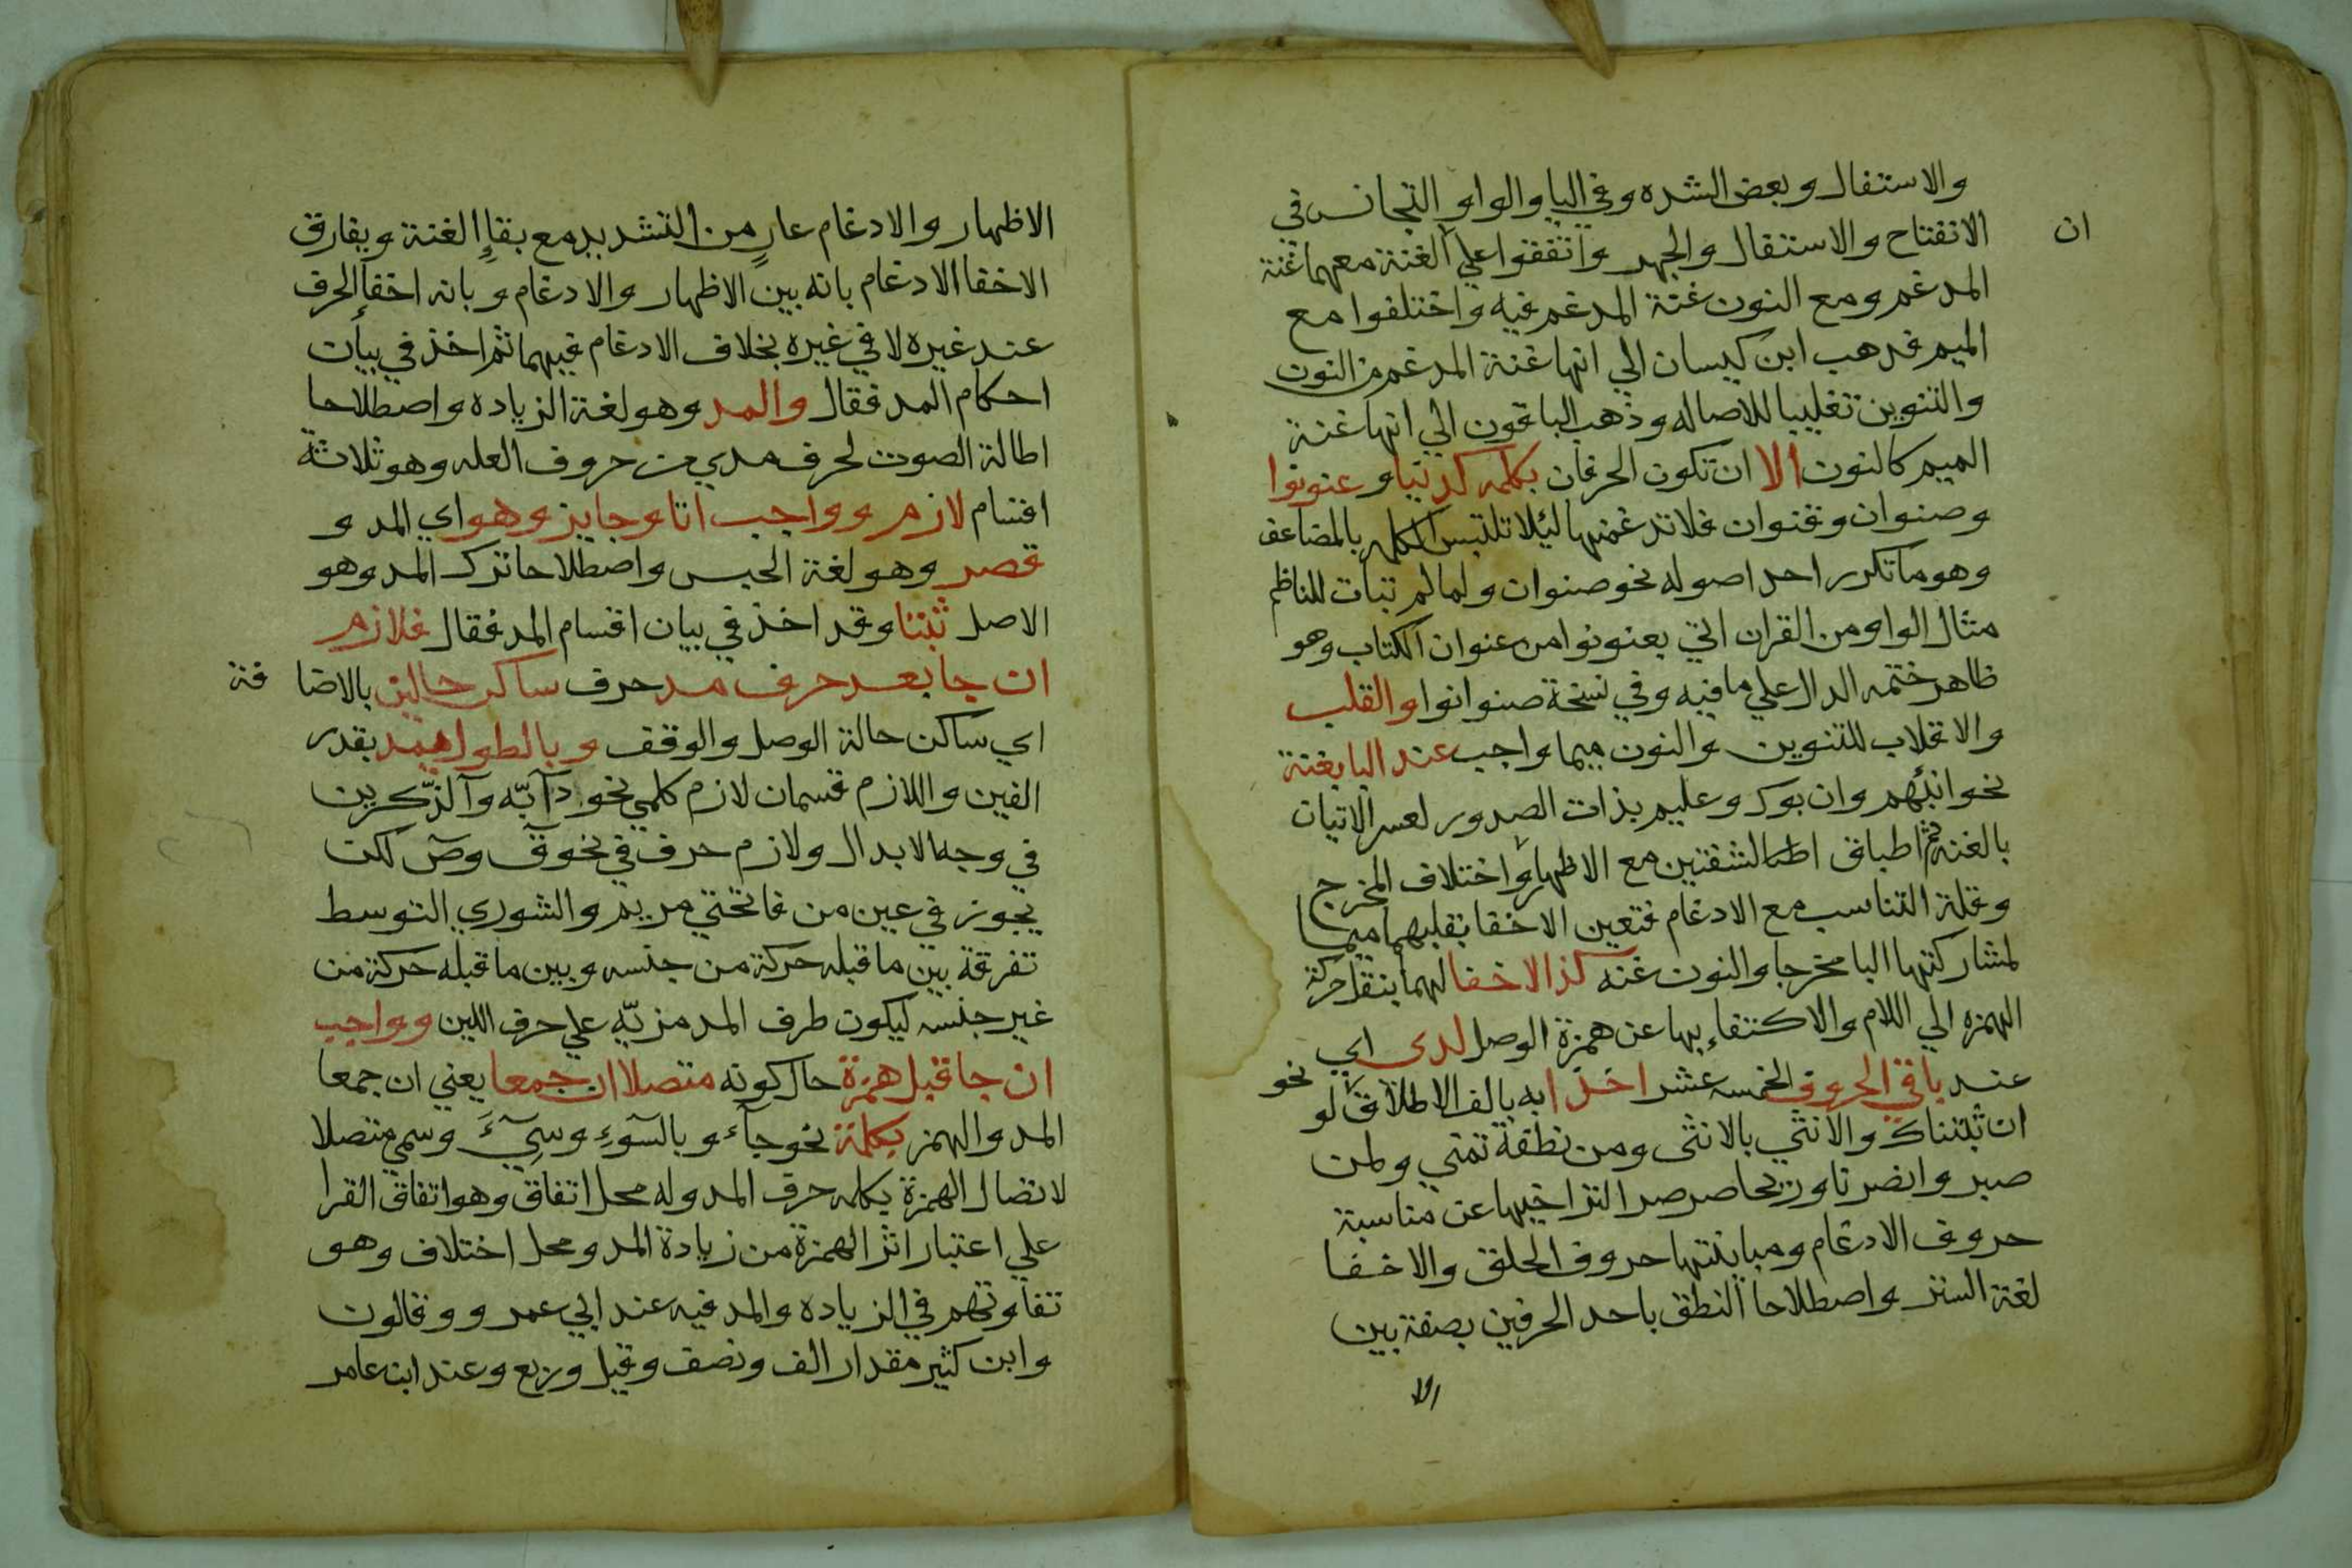 والاستفال وبعض الشده وفي اليا والواو التجانس في
الانفتاح والاستفال والجهر واتفقوا علي الغنة معهما غنة
ان
المدغم ومع النون غنة المدغم فيه واختلفوا مع
الميم فذهب ابن كيسان الي انها غنة المدغم من النون
والتنوين تغليبا للاصاله وذهب الباقون الي انها غنة
الميم كالنون الا ان تكون الحرفان بكلمه كدنيا وعنونوا
وصنوان وقنوان فلا تدغمنها ليئلا تلتبس الكلمه بالمضاعف
وهو ما تكرر احد اصوله نحو صنوان ولما لم تبات للناظم
مثال الواو من القران اتي بعنونوا من عنوان الكتاب وهو
ظاهر ختمه الدال علي ما فيه وفي نسخة صنوانوا والقلب
والاقلاب للتنوين والنون ميما واجب عند البا بغنة
نحو انبئهم وان بورك وعليم بذات الصدور لعسر الاتيان
بالغنه ثم اطباق الشفتين مع الاظهار واختلاف المخرج
وقلة التناسب مع الادغام فتعين الاخفا بقلبهما ميما
لمشاركتها البا مخرجا والنون غنه كذا الاخفا لهما بنقل حركة
الهمزه الي اللام والاكتفاء بها عن همزة الوصل لدى اي
عند باقي الحروف الخمسه عشر اخذا به بالف الاطلاق نحو
ان ثبتناك والانثي بالانثى ومن نطفة تمني ولمن
صبر وانصرنا وريحا صرصرا لتراخيها عن مناسبة
حروف الادغام ومباينتها حروف الحلق والاخفا
لغة الستر واصطلاحا النطق باحد الحرفين بصفة بين
الا
الاظهار والادغام عارٍ من التشديد مع بقاءِ الغنة ويفارق
الاخفا الادغام بانه بين الاظهار والادغام وبانه اخفا الحرف
عند غيره لا في غيره بخلاف الادغام فيهما ثم اخذ في بيان
احكام المد فقال والمد وهو لغة الزياده واصطلاحا
اطالة الصوت لحرف مدي من حروف العله وهو ثلاثة
اقسام لازم وواجب اتا وجايز وهو اي المد و
قصر وهو لغة الحبس واصطلاحا ترك المد وهو
الاصل ثبتا وقد اخذ في بيان اقسام المد فقال فلازم
ان جا بعد حرف مد حرف ساكن حالين بالاضا فة
اي ساكن حالة الوصل والوقف وبالطول يمد بقدر
الفين واللازم قسمان لازم كلمي نحو دآبّه وآلذّكرين
في وجه الابدال ولازم حرفي نحو قٓ وصٓ لكن
يجوز في عين من فاتحتي مريم والشوري التوسط
تفرقة بين ما قبله حركة من جنسه وبين ما قبله حركة من
غير جنسه ليكون طرف المد مزيّه علي حرف اللين وواجب
ان جا قبل همزة حال كونه متصلا ان جمعا يعني ان جمعا
المد والهمز بكلمة نحو جآء وبالسّوٓءِ وسِيٓءَ وسمي متصلا
لاتصال الهمزة بكلمه حرف المد وله محل اتفاق وهو اتفاق القرا
علي اعتبار اثر الهمزة من زيادة المد ومحل اختلاف وهو
تفاوتهم في الزياده والمد فيه عند ابي عمرو وقالون
وابن كثير مقدار الف ونصف وقيل وربع وعند ابن عامر